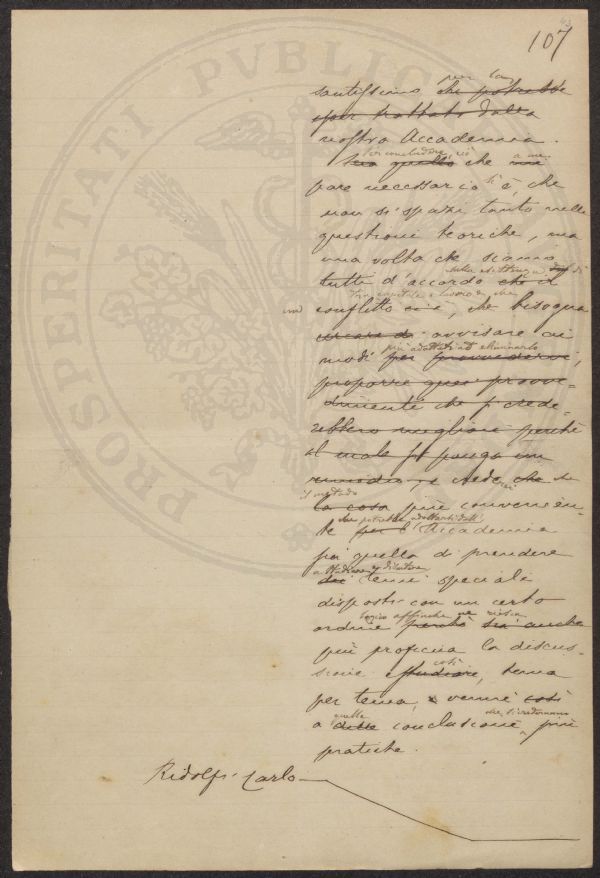 107
per la
santissimo che potrebbe
esser trattato dalla
nostra Accademia.
Per concludere, ciò
quello che a me
pare necessario si è, che
non si spazi tanto nelle
questioni teoriche, ma
una volta che siamo
sulla esistenza di
tutti d'accordo che il
tra capitale e lavoro, che
conflitto vi è, che bisogna
ancora di avvisare ai
più adattati ad eliminarlo
modi per provvedervi,
proporre quei provve-
dimenti che si crede-
rebbero migliori perchè
al male si ponga un
rimedio, e credo che
il metodo
la cosa più convenien-
che potrebbe adottarsi dall'
te per l'Accademia
sia quella di prendere
a studiare e discutere
dei temi speciali
disposti con un certo
logico affinchè ne riesca
ordine perchè sia anche
più proficua la discus-
così
sione studiare, tema
per tema, e venire così
quelle che si rederanno
a delle conclusione più
pratiche.
Ridolfi Carlo
PROSPERITATI PUBLICAE